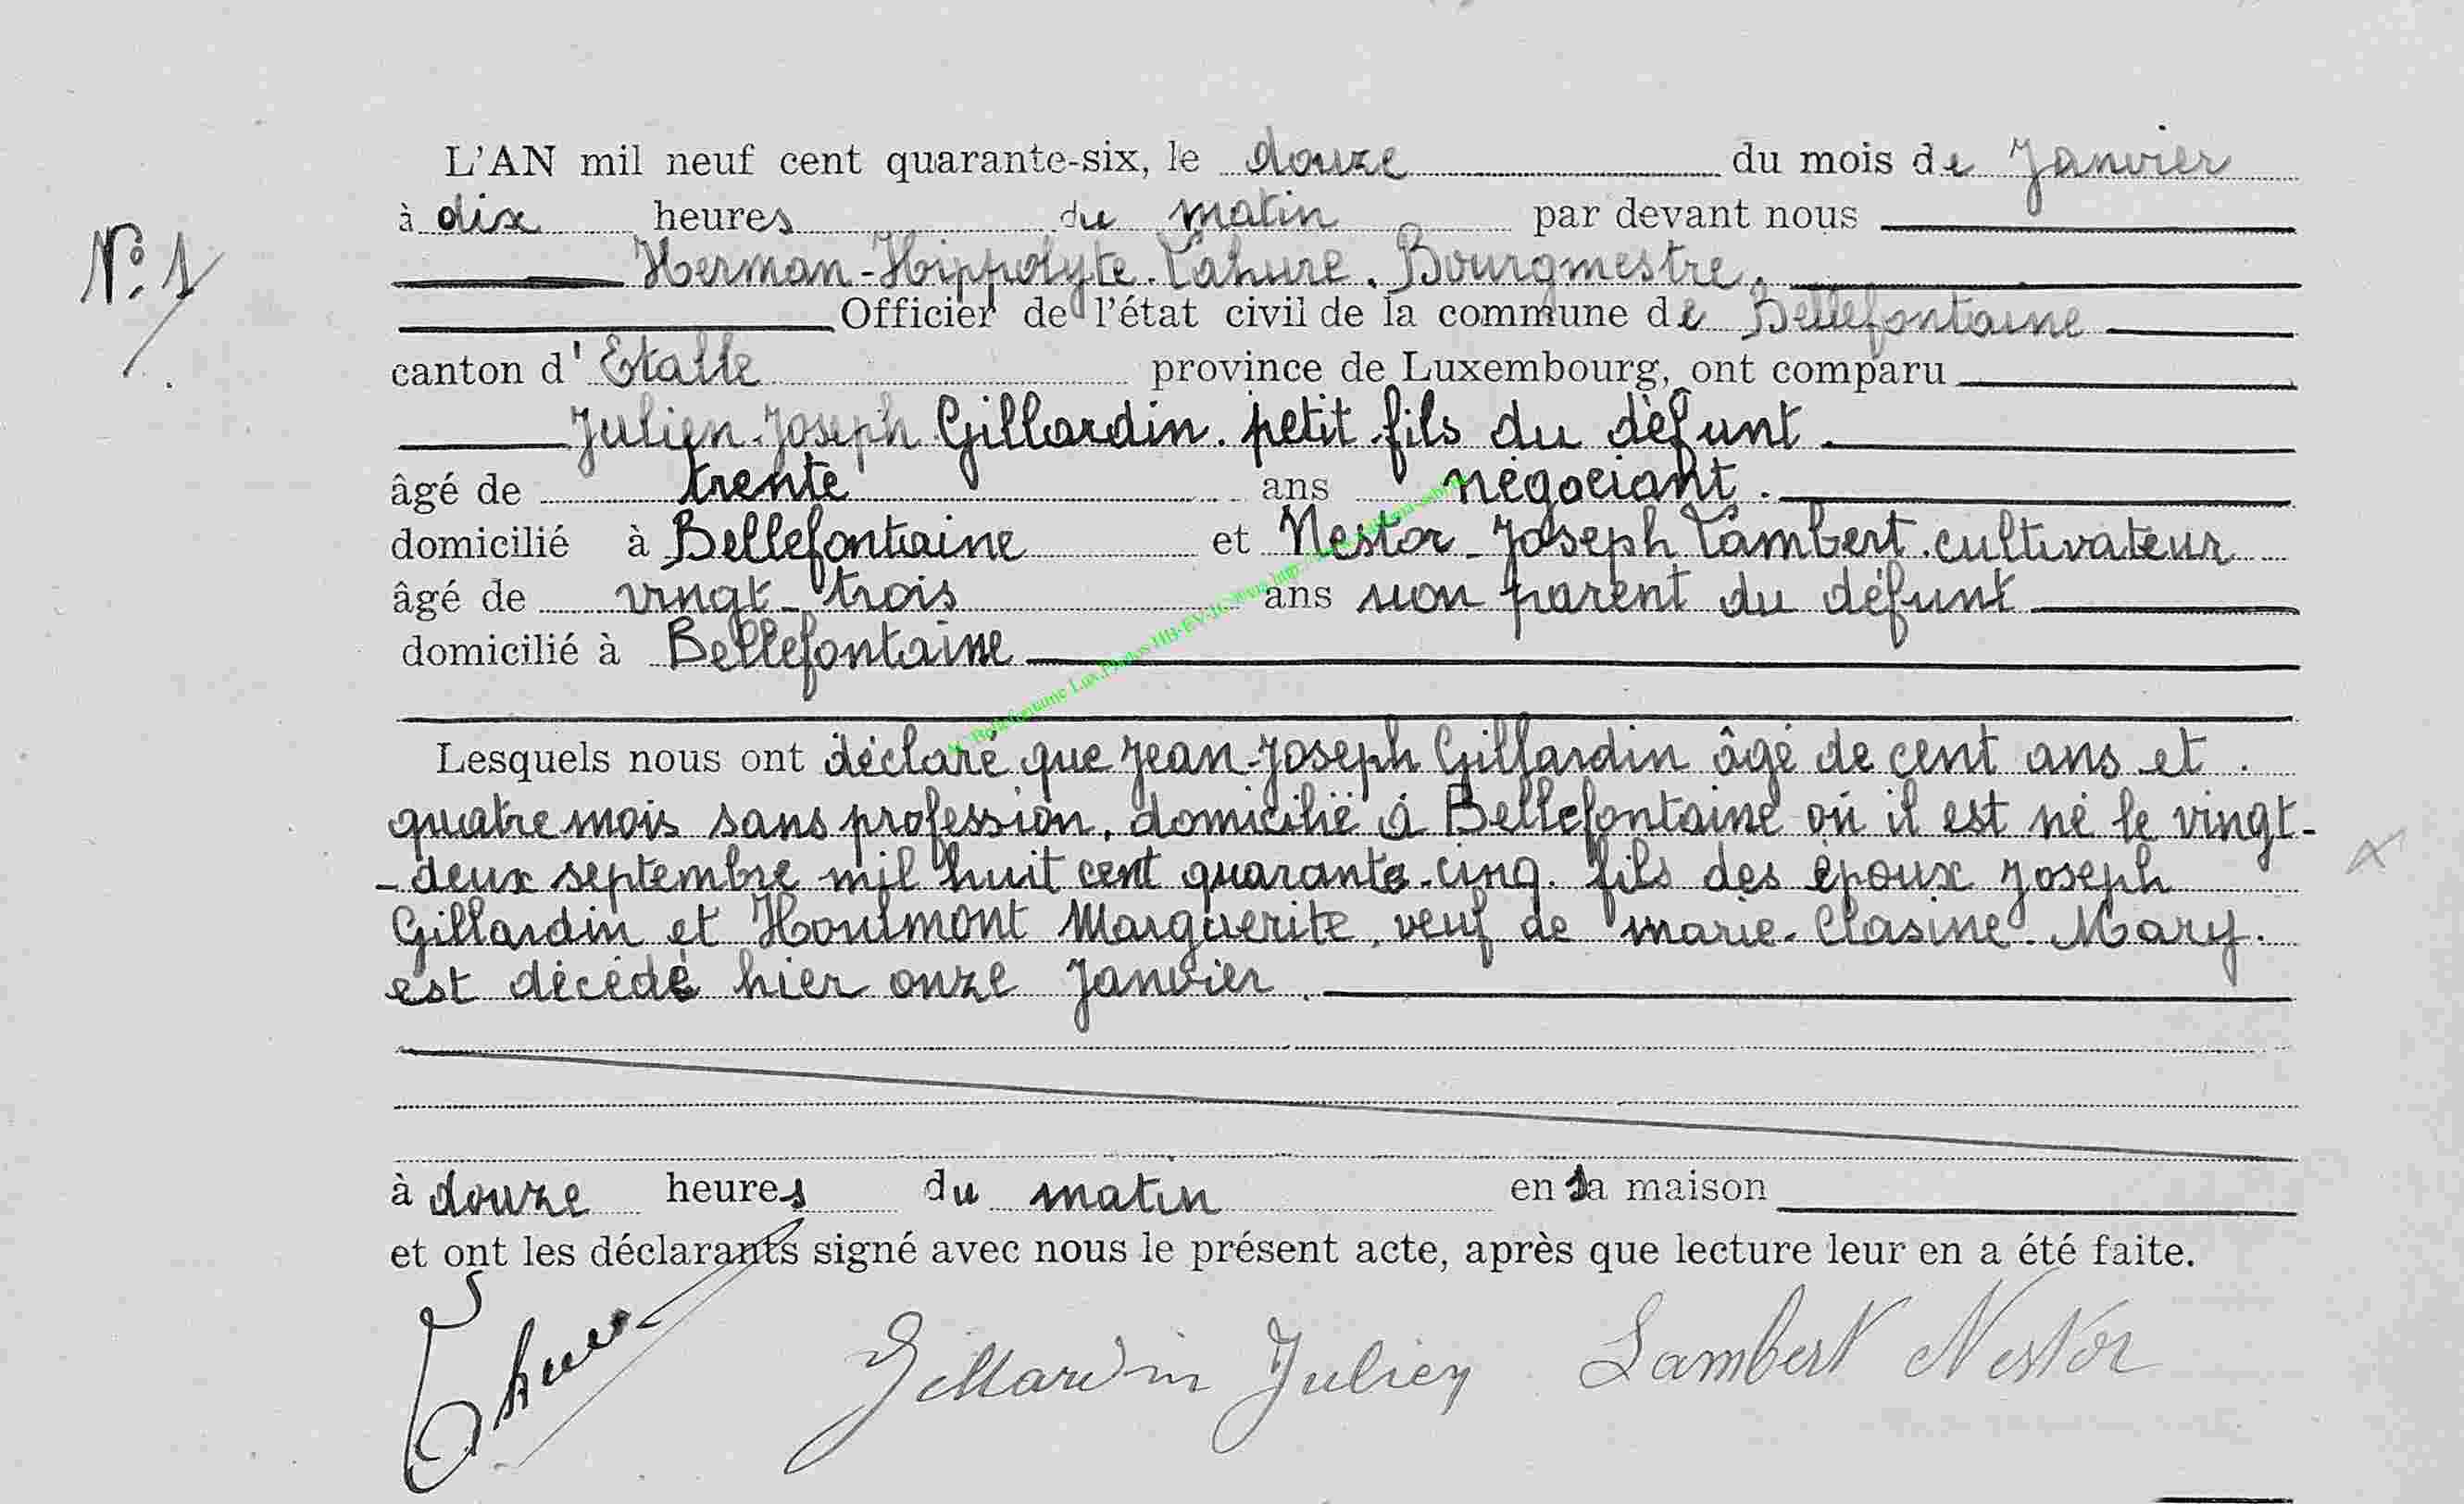 L'AN mil neuf cent quarante-six, le douze du mois de Janvier
N° 1
à dix heures du matin par devant nous
Herman-Hippolyte Lahure. Bourgmestre.
Officier de l'état civil de la commune de Bellefontaine
canton d'Etalle province de Luxembourg, ont comparu
Julien-Joseph Gillardin. petit-fils du défunt.
âgé de trente ans négociant.
domicilié à Bellefontaine et Nestor-Joseph Lambert. cultivateur
âgé de vingt-trois ans non parent du défunt
domicilié à Bellefontaine
Lesquels nous ont déclaré que Jean-Joseph Gillardin âgé de cent ans et
quatre mois sans profession, domicilié à Bellefontaine où il est né le vingt-
-deux septembre mil huit cent quarante-cinq. fils des époux Joseph
Gillardin et Houlmont Marguerite, veuf de marie-Clasine Mary.
est décédé hier onze Janvier
à douze heures du matin en sa maison
et ont les déclarants signé avec nous le présent acte, après que lecture leur en a été faite.
Gillardin Julien Lambert Nestor